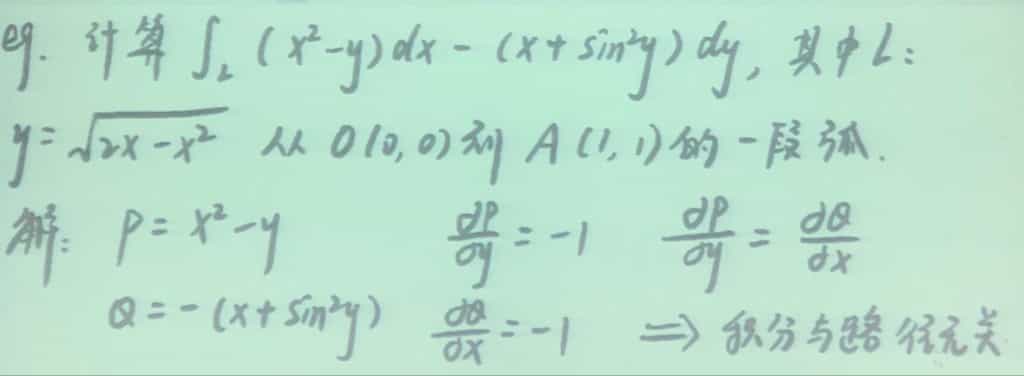 eg. 计算 ∫_L (x²-y)dx - (x+sin²y)dy, 其中L:
y=√(2x-x²) 从 O(0,0)到 A(1,1)的一段弧.
解: P=x²-y ∂P/∂y=-1 ∂P/∂y=∂Q/∂x
Q=-(x+sin²y) ∂Q/∂x=-1 ⇒ 积分与路径无关